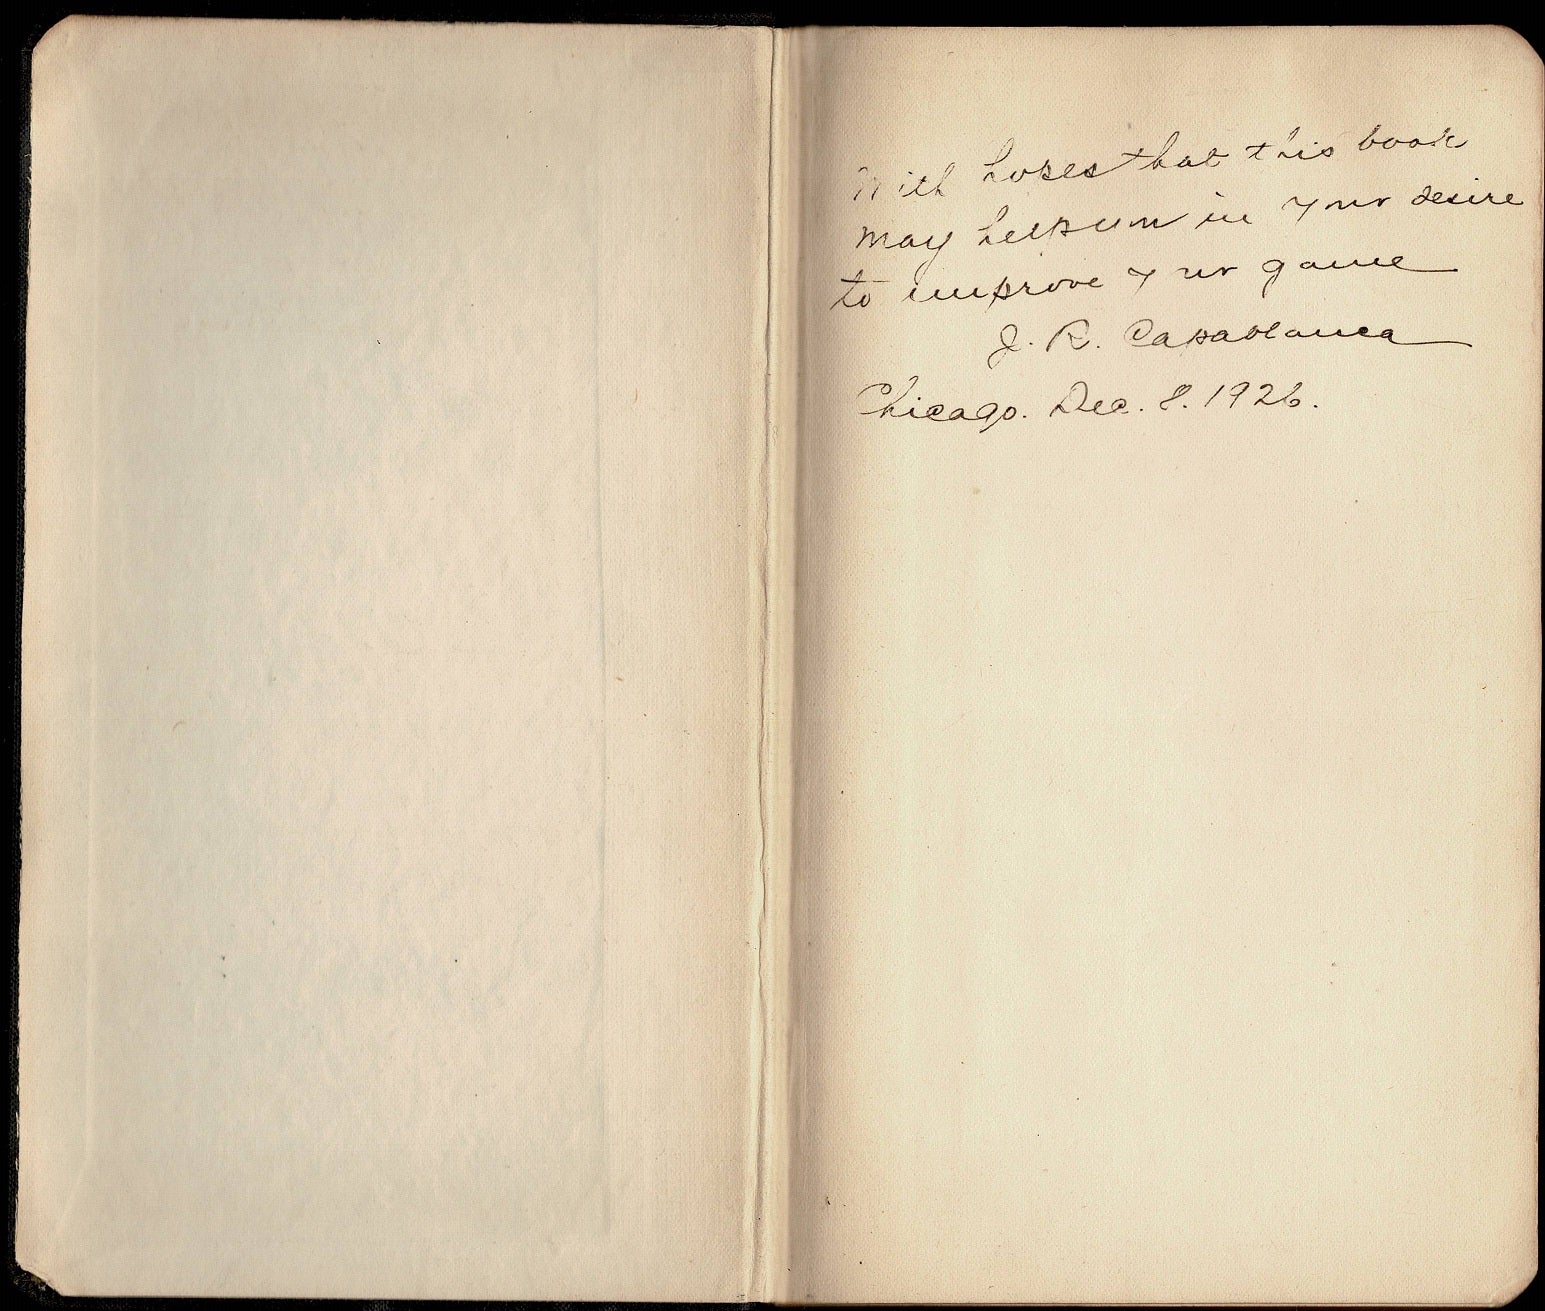 With hopes that this book
may help you in your desire
to improve your game
J. R. Capablanca
Chicago. Dec. 8. 1926.